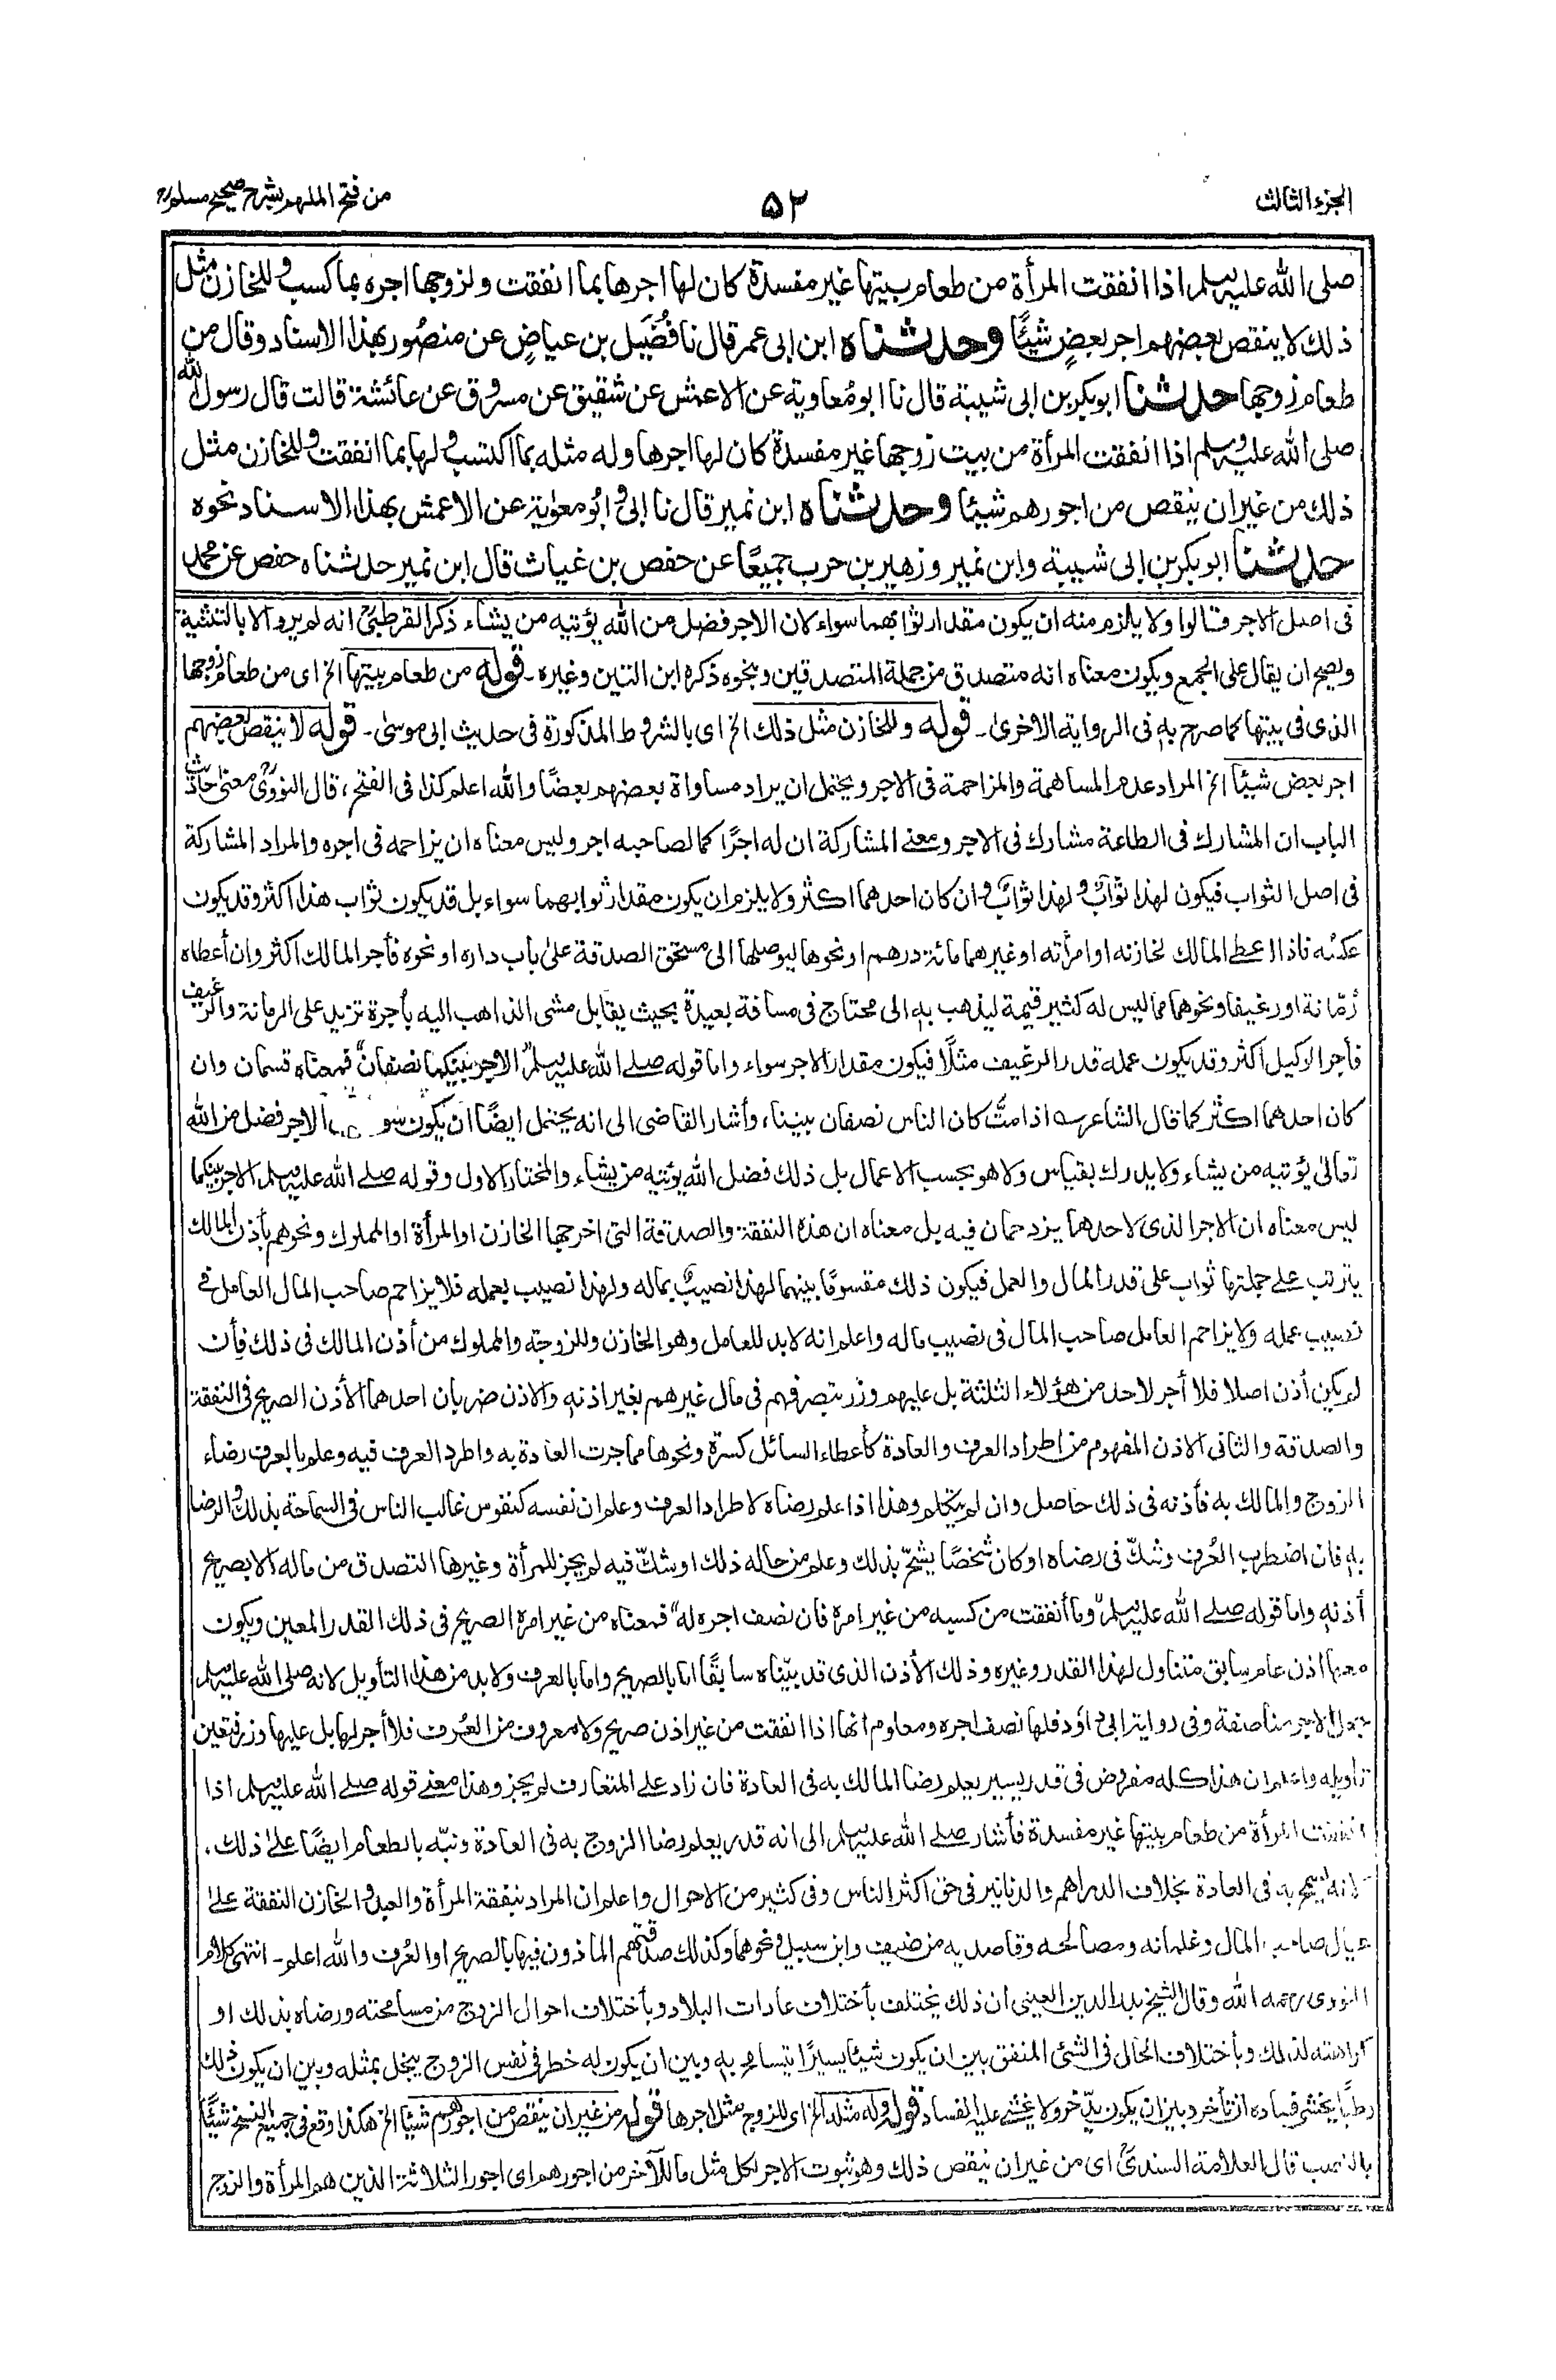 الجزء الثالث
۵۲
من فتح الملهم بشرح صحيح مسلم
صلى الله عليه وسلم اذا انفقت المرأة من طعام بيتها غير مفسدة كان لها اجرها بما انفقت ولزوجها اجره بما كسب وللخازن مثل
ذلك لا ينقص بعضهم اجر بعض شيئًا وحدثناه ابن ابى عمر قال نا فضيل بن عياض عن منصور بهذا الاسناد وقال من
طعام زوجها حدثنا ابو بكر بن ابى شيبة قال نا ابو معاوية عن الاعمش عن شقيق عن مسروق عن عائشة قالت قال رسول الله
صلى الله عليه وسلم اذا انفقت المرأة من بيت زوجها غير مفسدة كان لها اجرها وله مثله بما اكتسب ولها بما انفقت وللخازن مثل
ذلك من غير ان ينقص من اجورهم شيئا وحدثناه ابن نمير قال نا ابى وابو معوية عن الاعمش بهذا الاسناد نحوه
حدثنا ابو بكر بن ابى شيبة وابن نمير وزهير بن حرب جميعًا عن حفص بن غياث قال ابن نمير حدثناه حفص عن محمد
فى اصل الاجر قالوا ولا يلزم منه ان يكون مقدار ثوابهما سواء لان الاجر فضل من الله يؤتيه من يشاء، ذكر القرطبى انه لم يرو الا بالتثنية
ويصح ان يقال على الجمع ويكون معناه انه متصدق من جملة المتصدقين وبنحوه ذكره ابن التين وغيره ـ قوله من طعام بيتها الخ اى من طعام زوجها
الذى فى بيتها كما صرح به فى الرواية الاخرى ـ قوله وللخازن مثل ذلك الخ اى بالشروط المذكورة فى حديث ابى موسى ـ قوله لا ينقص بعضهم
اجر بعض شيئا الخ المراد عدم المساهمة والمزاحمة فى الاجر ويحتمل ان يراد مساواة بعضهم بعضًا والله اعلم كذا فى الفتح، قال النووى معنى حديث
الباب ان المشارك فى الطاعة مشارك فى الاجر ومعنى المشاركة ان له اجرًا كما لصاحبه اجر وليس معناه ان يزاحمه فى اجره والمراد المشاركة
فى اصل الثواب فيكون لهذا ثواب ولهذا ثواب وان كان احدهما اكثر ولا يلزم ان يكون مقدار ثوابهما سواء بل قد يكون ثواب هذا اكثر وقد يكون
عكسه فاذا اعطى المالك لخازنه او امرأته او غيرهما مائة درهم او نحوها ليوصلها الى مستحق الصدقة على باب داره او نحوه فأجر المالك اكثر وان أعطاه
رُمّانة او رغيفا ونحوهما مما ليس له كثير قيمة ليذهب به الى محتاج فى مسافة بعيدة بحيث يقابل مشى الذاهب اليه بأجرة تزيد على الرمانة والرغيف
فأجر الوكيل اكثر وقد يكون عمله قدر الرغيف مثلًا فيكون مقدار الاجر سواء واما قوله صلى الله عليه وسلم "الاجر بينكما نصفان" فمعناه قسمان وان
كان احدهما اكثر كما قال الشاعر اذا متُّ كان الناس نصفان بيننا، وأشار القاضى الى انه يحتمل ايضًا ان يكون سو الاجر فضل من الله
تعالى يؤتيه من يشاء ولا يدرك بقياس ولا هو بحسب الاعمال بل ذلك فضل الله يؤتيه من يشاء والمختار الاول وقوله صلى الله عليه وسلم الاجر بينكما
ليس معناه ان الاجر الذى لاحدهما يزدحمان فيه بل معناه ان هذه النفقة والصدقة التى اخرجها الخازن او المرأة او المملوك ونحوهم بأذن المالك
يترتب على جملتها ثواب على قدر المال والعمل فيكون ذلك مقسومًا بينهما لهذا نصيب بماله ولهذا نصيب بعمله فلا يزاحم صاحب المال العامل فى
نصيب عمله ولا يزاحم العامل صاحب المال فى نصيب ماله واعلم انه لا بد للعامل وهو الخازن وللزوجة والمملوك من أذن المالك فى ذلك فأن
لم يكن أذن اصلا فلا أجر لاحد من هؤلاء الثلثة بل عليهم وزر بتصرفهم فى مال غيرهم بغير اذنه والاذن ضربان احدهما الأذن الصريح فى النفقة
والصدقة والثانى الاذن المفهوم من اطراد العرف والعادة كأعطاء السائل كسرة ونحوها مما جرت العادة به واطرد العرف فيه وعلم بالعرف رضاء
الزوج والمالك به فأذنه فى ذلك حاصل وان لم يتكلم وهذا اذا علم رضاه لاطراد العرف وعلم ان نفسه كنفوس غالب الناس فى السماحة بذلك والرضا
به فان اضطرب العُرف وشكّ فى رضاه او كان شخصًا يشحّ بذلك وعلم من حاله ذلك او شكّ فيه لم يجز للمرأة وغيرها التصدق من ماله الا بصريح
أذنه واما قوله صلى الله عليه وسلم "وما أنفقت من كسبه من غير امره فان نصف اجره له" فمعناه من غير امره الصريح فى ذلك القدر المعين ويكون
معها اذن عام سابق متناول لهذا القدر وغيره وذلك الأذن الذى قد بيّناه سابقًا اما بالصريح واما بالعرف ولا بد من هذا التأويل لانه صلى الله عليه وسلم
جعل الاجر مناصفة وفى رواية ابى داؤد فلها نصف اجره ومعلوم انها اذا انفقت من غير اذن صريح ولا معروف من العُرف فلا أجر لها بل عليها وزر فتعين
تأويله واعلم ان هذا كله مفروض فى قدر يسير يعلم رضا المالك به فى العادة فان زاد على المتعارف لم يجز وهذا معنى قوله صلى الله عليه وسلم اذا
انفقت المرأة من طعام بيتها غير مفسدة فأشار صلى الله عليه وسلم الى انه قدر يعلم رضا الزوج به فى العادة ونبّه بالطعام ايضًا على ذلك.
لانه يسمح به فى العادة بخلاف الدراهم والدنانير فى حق اكثر الناس وفى كثير من الاحوال واعلم ان المراد بنفقة المرأة والعبد والخازن النفقة على
عيال صاحب المال وغلمانه ومصالحه وقاصديه من ضيف وابن سبيل ونحوهما وكذلك صدقتهم الماذون فيها بالصريح او العُرف والله اعلم ـ انتهى كلام
النووى رحمه الله وقال الشيخ بدر الدين العينى ان ذلك يختلف بأختلاف عادات البلاد وبأختلاف احوال الزوج من مسامحته ورضاه بذلك او
كراهته لذلك وبأختلاف الحال فى الشئ المنفق بين ان يكون شيئا يسيرًا يتسامح به وبين ان يكون له خطر فى نفس الزوج يبخل بمثله وبين ان يكون ذلك
رطبًا يخشى فساده ان تأخر وبين ان يكون يدّخر ولا يخشى عليه الفساد قوله وله مثله الخ اى للزوج مثل اجرها قوله من غير ان ينقص من اجورهم شيئا الخ هكذا وقع فى جميع النسخ شيئًا
بالنصب قال العلامة السندى اى من غير ان ينقص ذلك وهو ثبوت الاجر لكل مثل ما للآخر من اجورهم اى اجور الثلاثة الذين هم المرأة والزوج